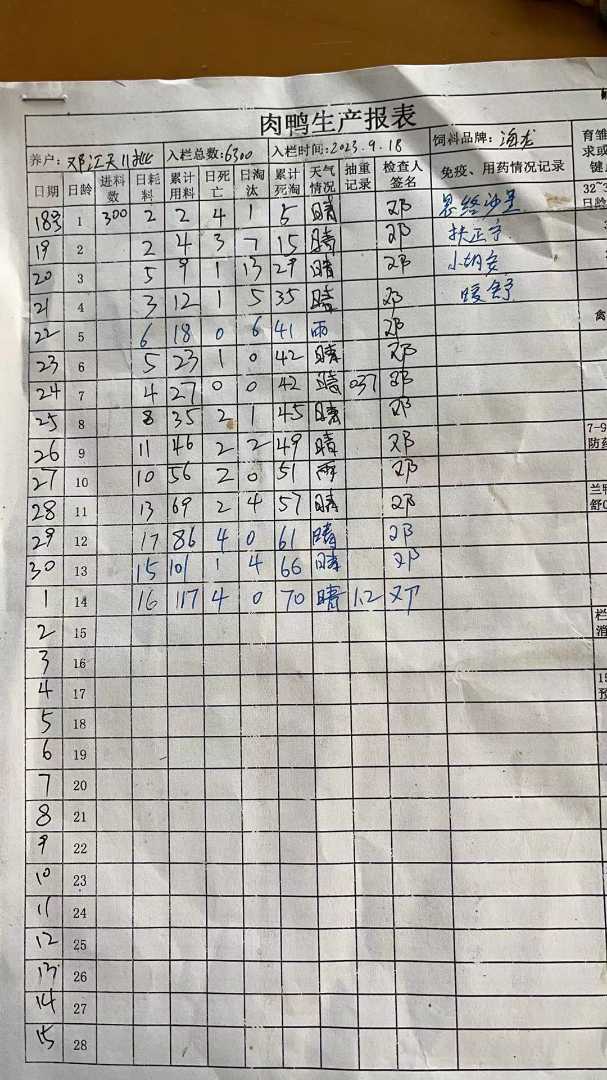 肉鸭生产报表
养户: 邓江天11批 入栏总数:6300 入栏时间:2023.9.18 饲料品牌: 海龙
日期 日龄 进料数 日耗料 累计用料 日死亡 日淘汰 累计死淘 天气情况 抽重记录 检查人签名 免疫、用药情况记录
1 300 2 2 4 1 5 晴 邓 恩给沙星
19 2 2 4 3 7 15 晴 邓 扶正宁
20 3 5 9 1 13 29 晴 邓
21 4 3 12 1 5 35 晴 邓 暖舒
22 5 6 18 0 6 41 雨 邓
23 6 5 23 1 0 42 晴 邓
24 7 4 27 0 0 42 晴 037 邓
25 8 8 35 2 1 45 晴 邓
26 9 11 46 2 2 49 晴 邓
27 10 10 56 2 0 51 雨 邓
28 11 13 69 2 4 57 晴 邓
29 12 17 86 4 0 61 晴 邓
30 13 15 101 1 4 66 晴 邓
1 14 16 117 4 0 70 晴 1.2 邓
2 15
3 16
4 17
5 18
6 19
7 20
8 21
9 22
10 23
11 24
12 25
13 26
14 27
15 28
育雏
求或
键
32~3
日龄
禽
7-9
防药
兰鸭
舒
栏
消
15
预